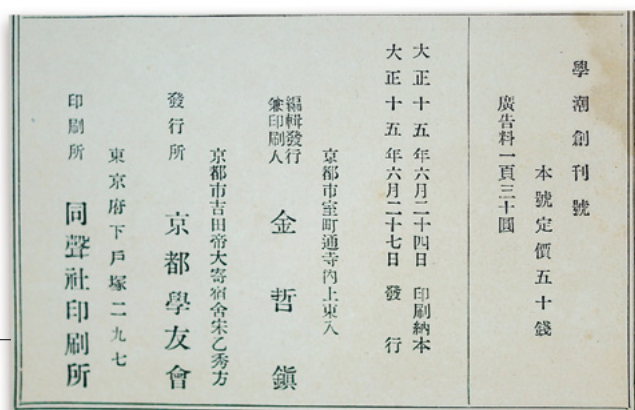 學潮創刊號
本號定價五十錢
廣告料一頁三十圓
大正十五年六月二十四日 印刷納本
大正十五年六月二十七日 發行
京都市室町通寺內上東入
編輯發行
兼印刷人 金哲鎭
京都市吉田帝大寄宿舍宋乙秀方
發行所 京都學友會
東京府下戶塚二九七
印刷所 同聲社印刷所